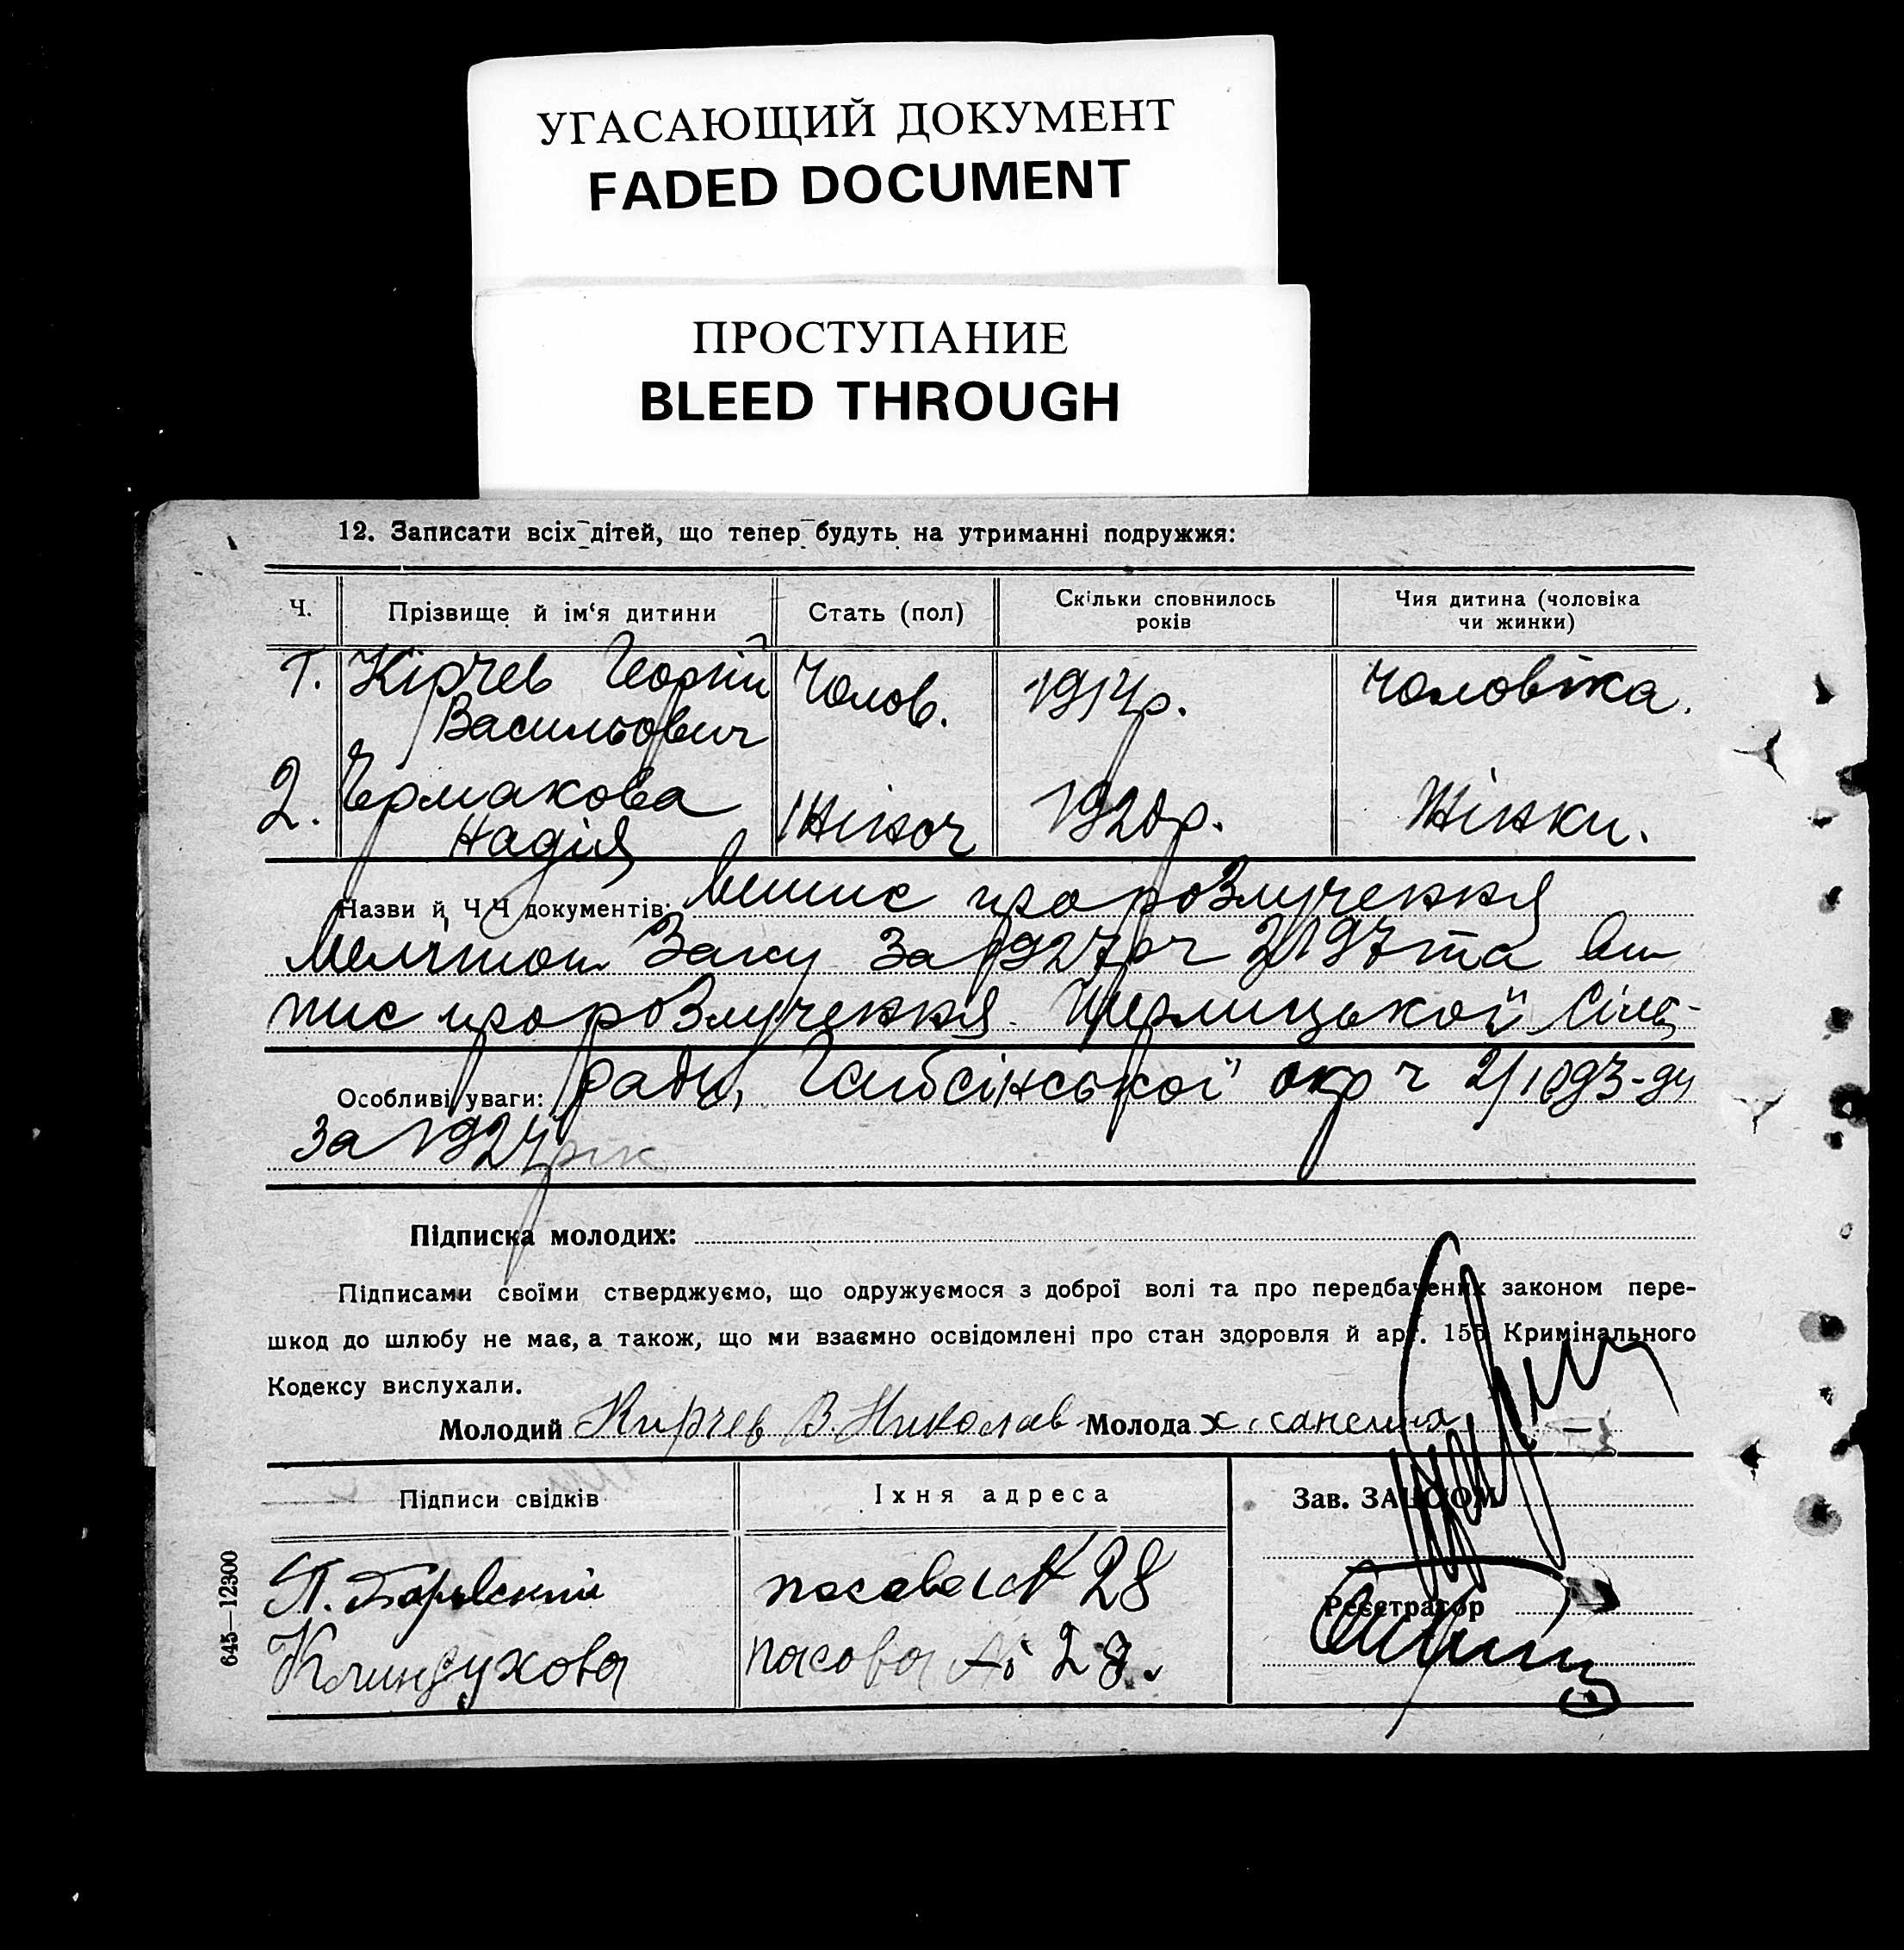 УГАСАЮЩИЙ ДОКУМЕНТ
FADED DOCUMENT
ПРОСТУПАНИЕ
BLEED THROUGH
12. Записати всіх дітей, що тепер будуть на утриманні подружжя:
Ч. Прізвище й ім‘я дитини Стать (пол) Скільки сповнилось років Чия дитина (чоловіка чи жинки)
1. Кірчев Георгій Чолов. чоловіка.
Васильович
2. Чермакова Жіноч 1920р. Жінки.
Надія
Назви й Ч Ч документів: Випис про розлучення
Меліт Загсу За 1927р ч 2197 та ви
пис про розлучення Сіль-
Особливі уваги: ради, окр ч 2/1093-
За 1927 рік
Підписка молодих:
Підписами своїми стверджуємо, що одружуємося з доброї волі та про передбачених законом пере-
шкод до шлюбу не має, а також, що ми взаємно освідомлені про стан здоровля й арт. 155 Кримінального
Кодексу вислухали.
Молодий Кирчев В. Николаев Молода х.
Підписи свідків Їхня адреса Зав. ЗАЦСОМ
28
Реєстратор
28.
645—12300